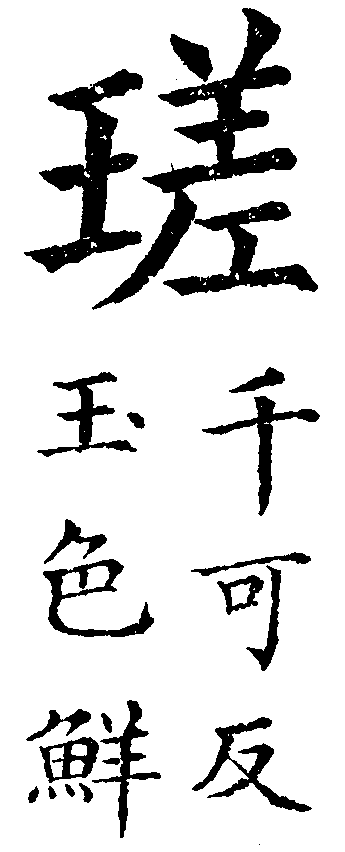 瑳
千可反
玉色鮮